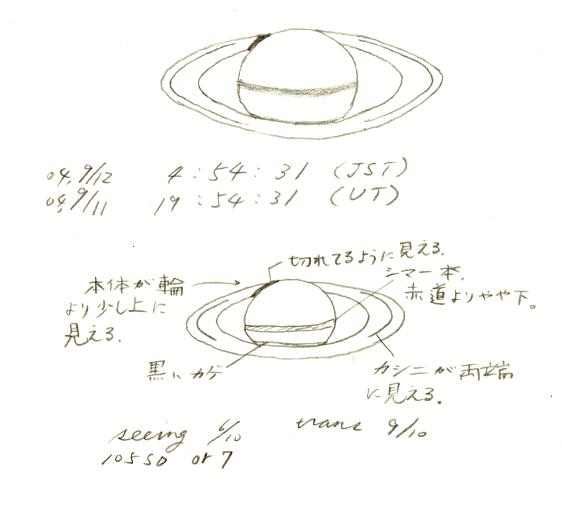 04, 9/12 4:54:31 (JST)
04, 9/11 19:54:31 (UT)
切れてるように見える.
シマ一本,
赤道よりやや下。
本体が輪
より少し上に
見える.
黒いカゲ
カシニが両端
に見える.
seeing 6/10 trans 9/10
105SD or 7